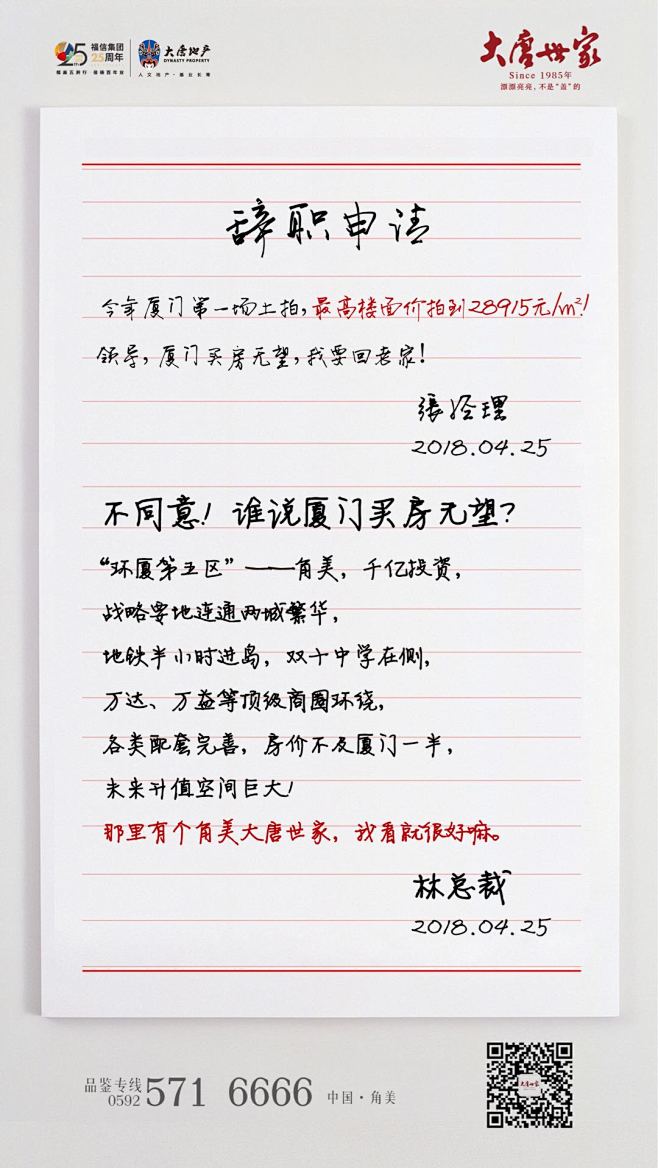 福信集团
25周年
福鑫五洲行 信硕百年业
大唐地产
DYNASTY PROPERTY
人文地产·基业长青
大唐世家
Since 1985年
漂漂亮亮，不是“盖”的
辞职申请
今年厦门第一场土拍，最高楼面价拍到28915元/m²！
领导，厦门买房无望，我要回老家！
張经理
2018.04.25
不同意！谁说厦门买房无望？
“环厦第五区”——角美，千亿投资，
战略要地连通两城繁华，
地铁半小时进岛，双十中学在侧，
万达、万益等顶级商圈环绕，
各类配套完善，房价不及厦门一半，
未来升值空间巨大！
那里有个角美大唐世家，我看就很好嘛。
林总裁
2018.04.25
品鉴专线 0592 571 6666 中国·角美
大唐世家